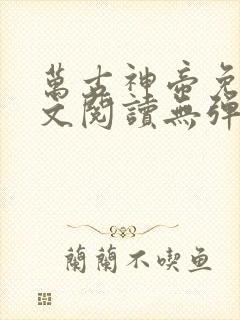 萬古神帝免
文閱讀無彈
蘭蘭不喫鱼